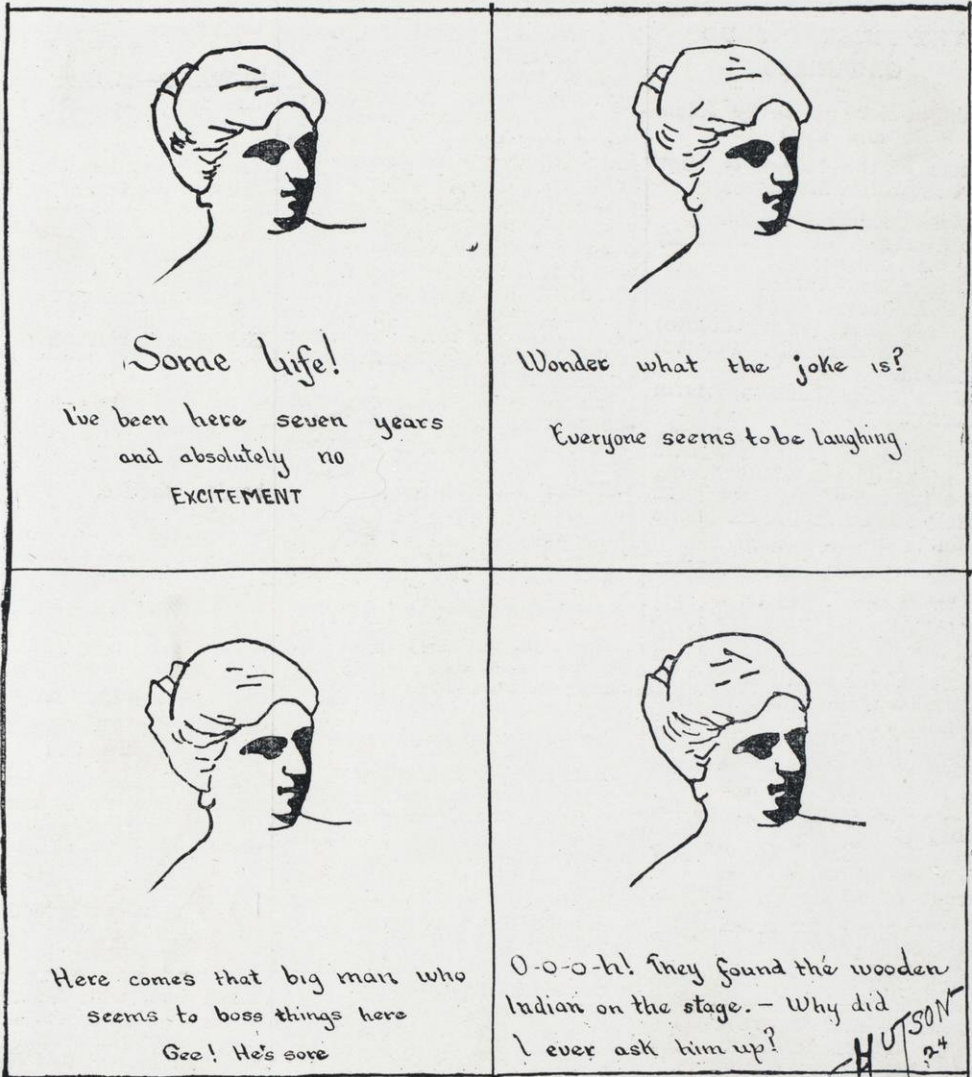 Some Life!
I've been here seven years
and absolutely no
EXCITEMENT
Wonder what the joke is?
Everyone seems to be laughing.
Here comes that big man who
seems to boss things here
Gee! He's sore
O-o-o-h! They found the wooden
Indian on the stage. — Why did
I ever ask him up?
HUTSON
'24